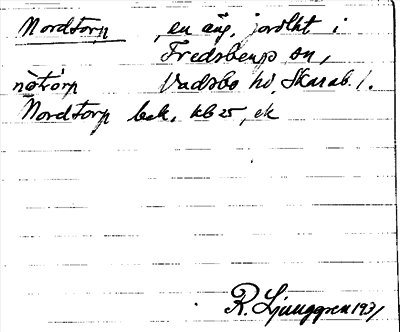 Nordtorp, en äg. jordlht i
Fredsbergs sn,
nòtórp Vadsbo hd, Skarab. l.
Nordtorp bek. kb 25, ek
R. Ljunggren 1931